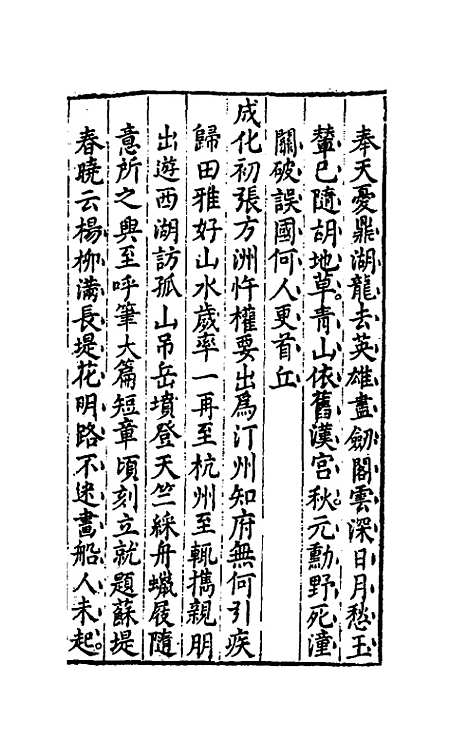 奉天憂鼎湖龍去英雄盡劒閣雲深日月愁玉
輦已隨胡地草青山依舊漢宮秋元勳野死潼
關破誤國何人更首丘
成化初張方洲忤權要出爲汀州知府無何引疾
歸田雅好山水歲率一再至杭州至輒擕親朋
出遊西湖訪孤山吊岳墳登天竺綵舟蠟屐隨
意所之興至呼筆大篇短章頃刻立就題蘇堤
春曉云楊柳滿長堤花明路不迷畫船人未起